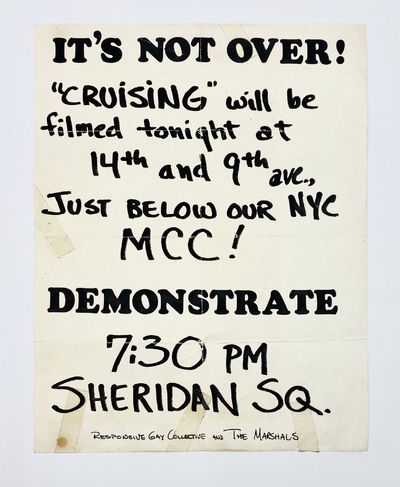 IT'S NOT OVER!
"CRUISING" will be
filmed tonight at
14th and 9th ave.,
JUST BELOW OUR NYC
MCC!
DEMONSTRATE
7:30 PM
SHERIDAN SQ.
RESPONSIVE GAY COLLECTIVE AND THE MARSHALS